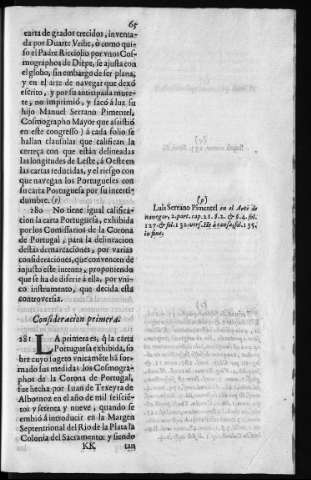 65
carta de grados crecidos, inventa-
da por Duarte Vrite, ò como qui-
so el Padre Ricciolio por vnos Cos-
mographos de Diepe, se ajusta con
el globo, sin embargo de ser plana,
y en el arte de navegar que dexò
escrito, y por su anticipada muer-
te, no imprimió, y sacó à luz su
hijo Manuel Serrano Pimentel,
Cosmographo Mayor que assistiò
en este congresso) à cada folio se
hallan clausulas que califican la
torpeça con que están delineadas
las longitudes de Leste, à Oeste en
las cartas reducidas, y el riesgo con
que navegan los Portugueses con
su carta Portuguesa por su incerti-
dumbre. (p)
280 No tiene igual califica-
cion la carta Portuguesa, exhibida
por los Comissarios de la Corona
de Portugal, para la delineacion
destas demarcaciones, por varias
consideraciones, que convencen de
injusto este intento, proponiendo
que se ha de diferir à ella, por vni-
co instrumento, que decida esta
controversia.
Consideracion primera.
281 LA primera es, q̃ la carta
Portuguesa exhibida, so-
bre cuyo logro vnicamẽte hã for-
mado sus medidas los Cosmogra-
phos de la Corona de Portugal,
fue hecha por Iuan de Texeyra de
Albornoz en el año de mil seiscie-
tos y setenta y nueve, quando se
embió à introducir en la Margen
Septentrional del Rio de la Plata la
Colonia del Sacramento: y siendo
KK tan
(p)
Luis Serrano Pimentel en el Arte de
navegar, 2. part. cap. 21. §. 2. & §. 4. fol.